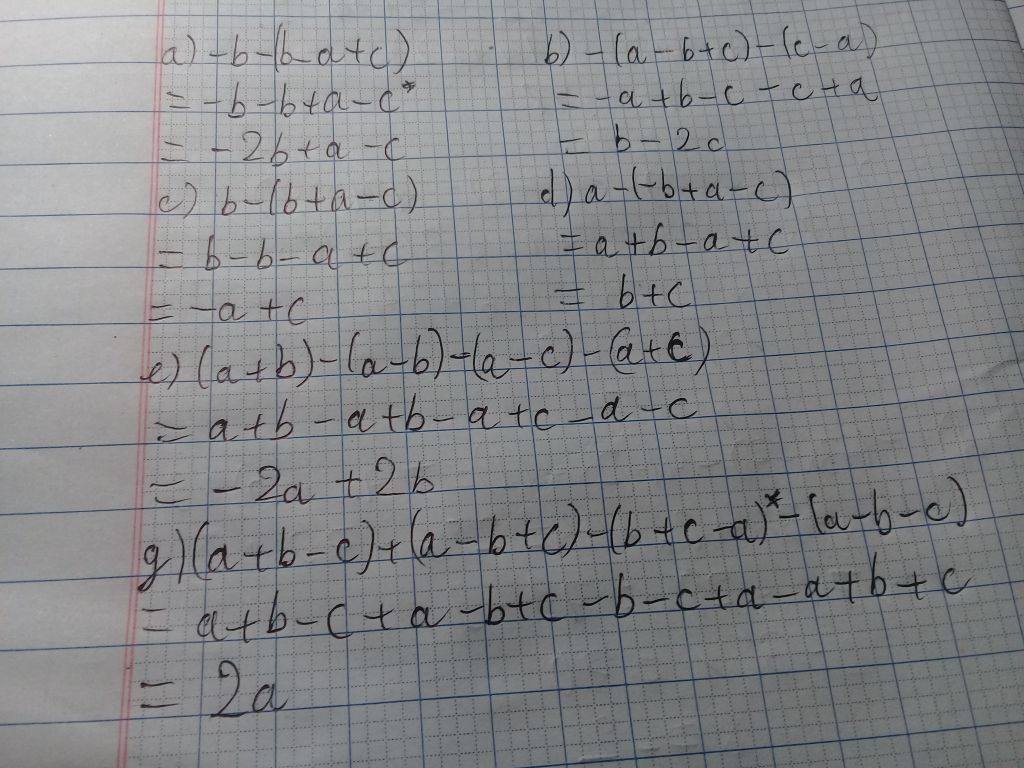 a) -b-(b-a+c)
b) -(a-b+c)-(c-a)
= -b-b+a-c*
= -a+b-c-c+a
= -2b+a-c
= b-2c
c) b-(b+a-c)
d) a-(-b+a-c)
= b-b-a+c
= a+b-a+c
= -a+c
= b+c
e) (a+b)-(a-b)-(a-c)-(a+c)
= a+b-a+b-a+c-a-c
= -2a+2b
g) (a+b-c)+(a-b+c)-(b+c-a)*-(a-b-c)
= a+b-c+a-b+c-b-c+a-a+b+c
= 2a